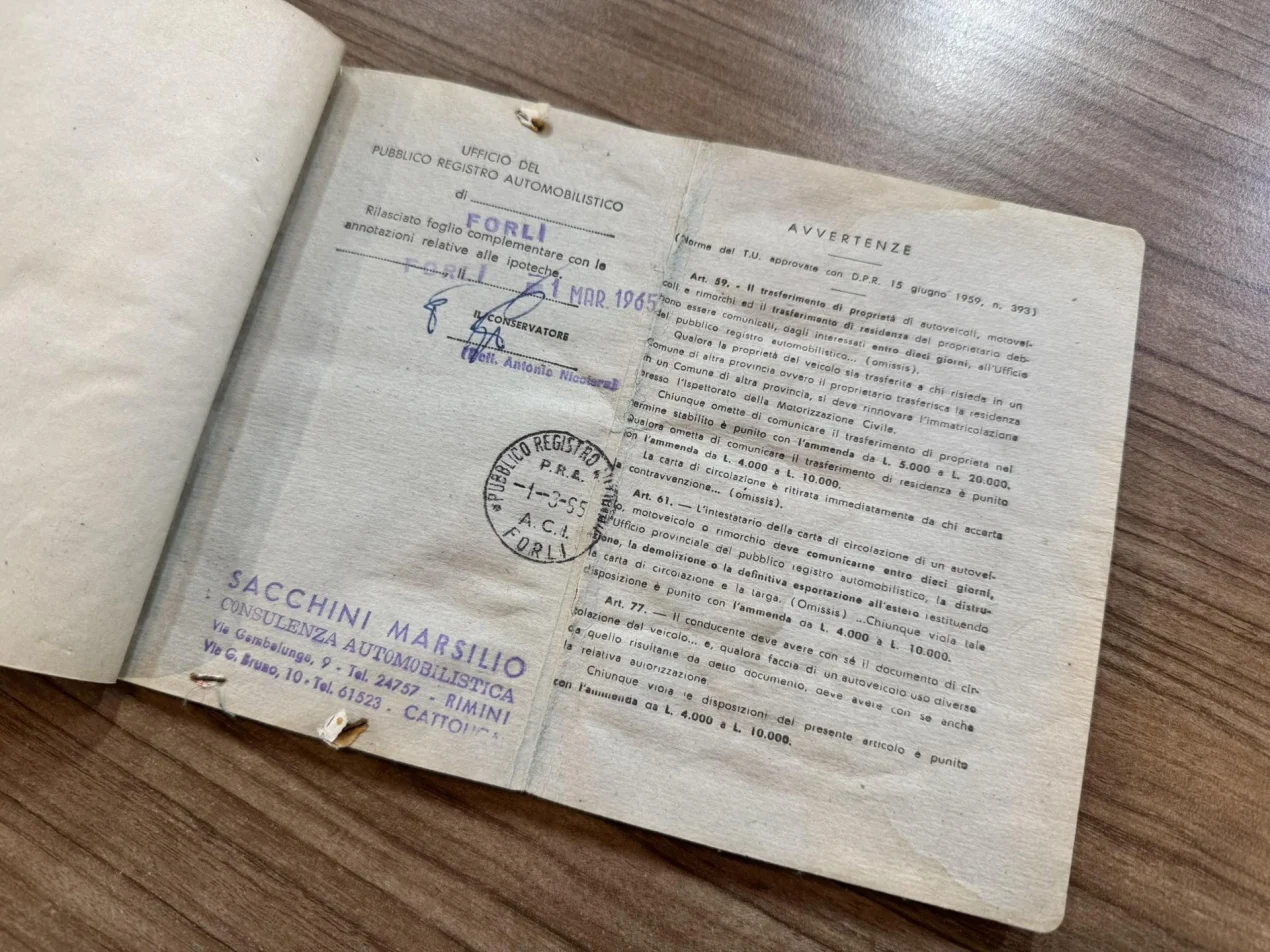 UFFICIO DEL
PUBBLICO REGISTRO AUTOMOBILISTICO
di
FORLI
Rilasciato foglio complementare con le
annotazioni relative alle ipoteche.
FORLI il 1 MAR. 1965
IL CONSERVATORE
(Dott. Antonio Nicotera)
PUBBLICO REGISTRO
P.R.A.
-1-3-65
A.C.I.
FORLI
SACCHINI MARSILIO
CONSULENZA AUTOMOBILISTICA
Via Gambalunga, 9 - Tel. 24757 - RIMINI
Via G. Bruno, 10 - Tel. 61523 - CATTOLICA
AVVERTENZE
(Norme del T.U. approvate con D.P.R. 15 giugno 1959, n. 393)
Art. 59. - Il trasferimento di proprietà di autoveicoli, motovei-
coli e rimorchi ed il trasferimento di residenza del proprietario deb-
bono essere comunicati, dagli interessati entro dieci giorni, all'Ufficio
del pubblico registro automobilistico... (omissis).
Qualora la proprietà del veicolo sia trasferita a chi risieda in un
Comune di altra provincia ovvero il proprietario trasferisca la residenza
in un Comune di altra provincia, si deve rinnovare l'immatricolazione
presso l'Ispettorato della Motorizzazione Civile.
Chiunque omette di comunicare il trasferimento di proprietà nel
termine stabilito è punito con l'ammenda da L. 5.000 a L. 20.000.
Qualora ometta di comunicare il trasferimento di residenza è punito
con l'ammenda da L. 4.000 a L. 10.000.
La carta di circolazione è ritirata immediatamente da chi accerta
la contravvenzione... (omissis).
Art. 61. — L'intestatario della carta di circolazione di un autovei-
colo, motoveicolo o rimorchio deve comunicare entro dieci giorni,
all'Ufficio provinciale del pubblico registro automobilistico, la distru-
zione, la demolizione o la definitiva esportazione all'estero restituendo
la carta di circolazione e la targa. (Omissis) ...Chiunque viola tale
disposizione è punito con l'ammenda da L. 4.000 a L. 10.000.
Art. 77. — Il conducente deve avere con sé il documento di cir-
colazione del veicolo... e, qualora faccia di un autoveicolo uso diverso
da quello risultante da detto documento, deve avere con se anche
la relativa autorizzazione.
Chiunque viola le disposizioni del presente articolo è punito
con l'ammenda da L. 4.000 a L. 10.000.